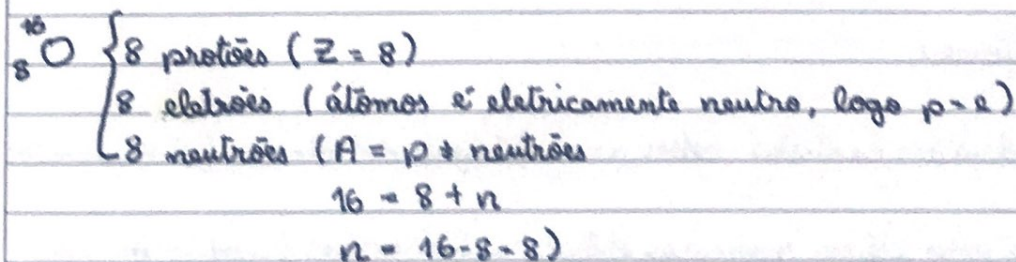 ¹⁶₈O { 8 protões (Z = 8)
8 eletrões (átomos é eletricamente neutro, logo p = e)
8 neutrões (A = p + neutrões
16 = 8 + n
n = 16 - 8 = 8)